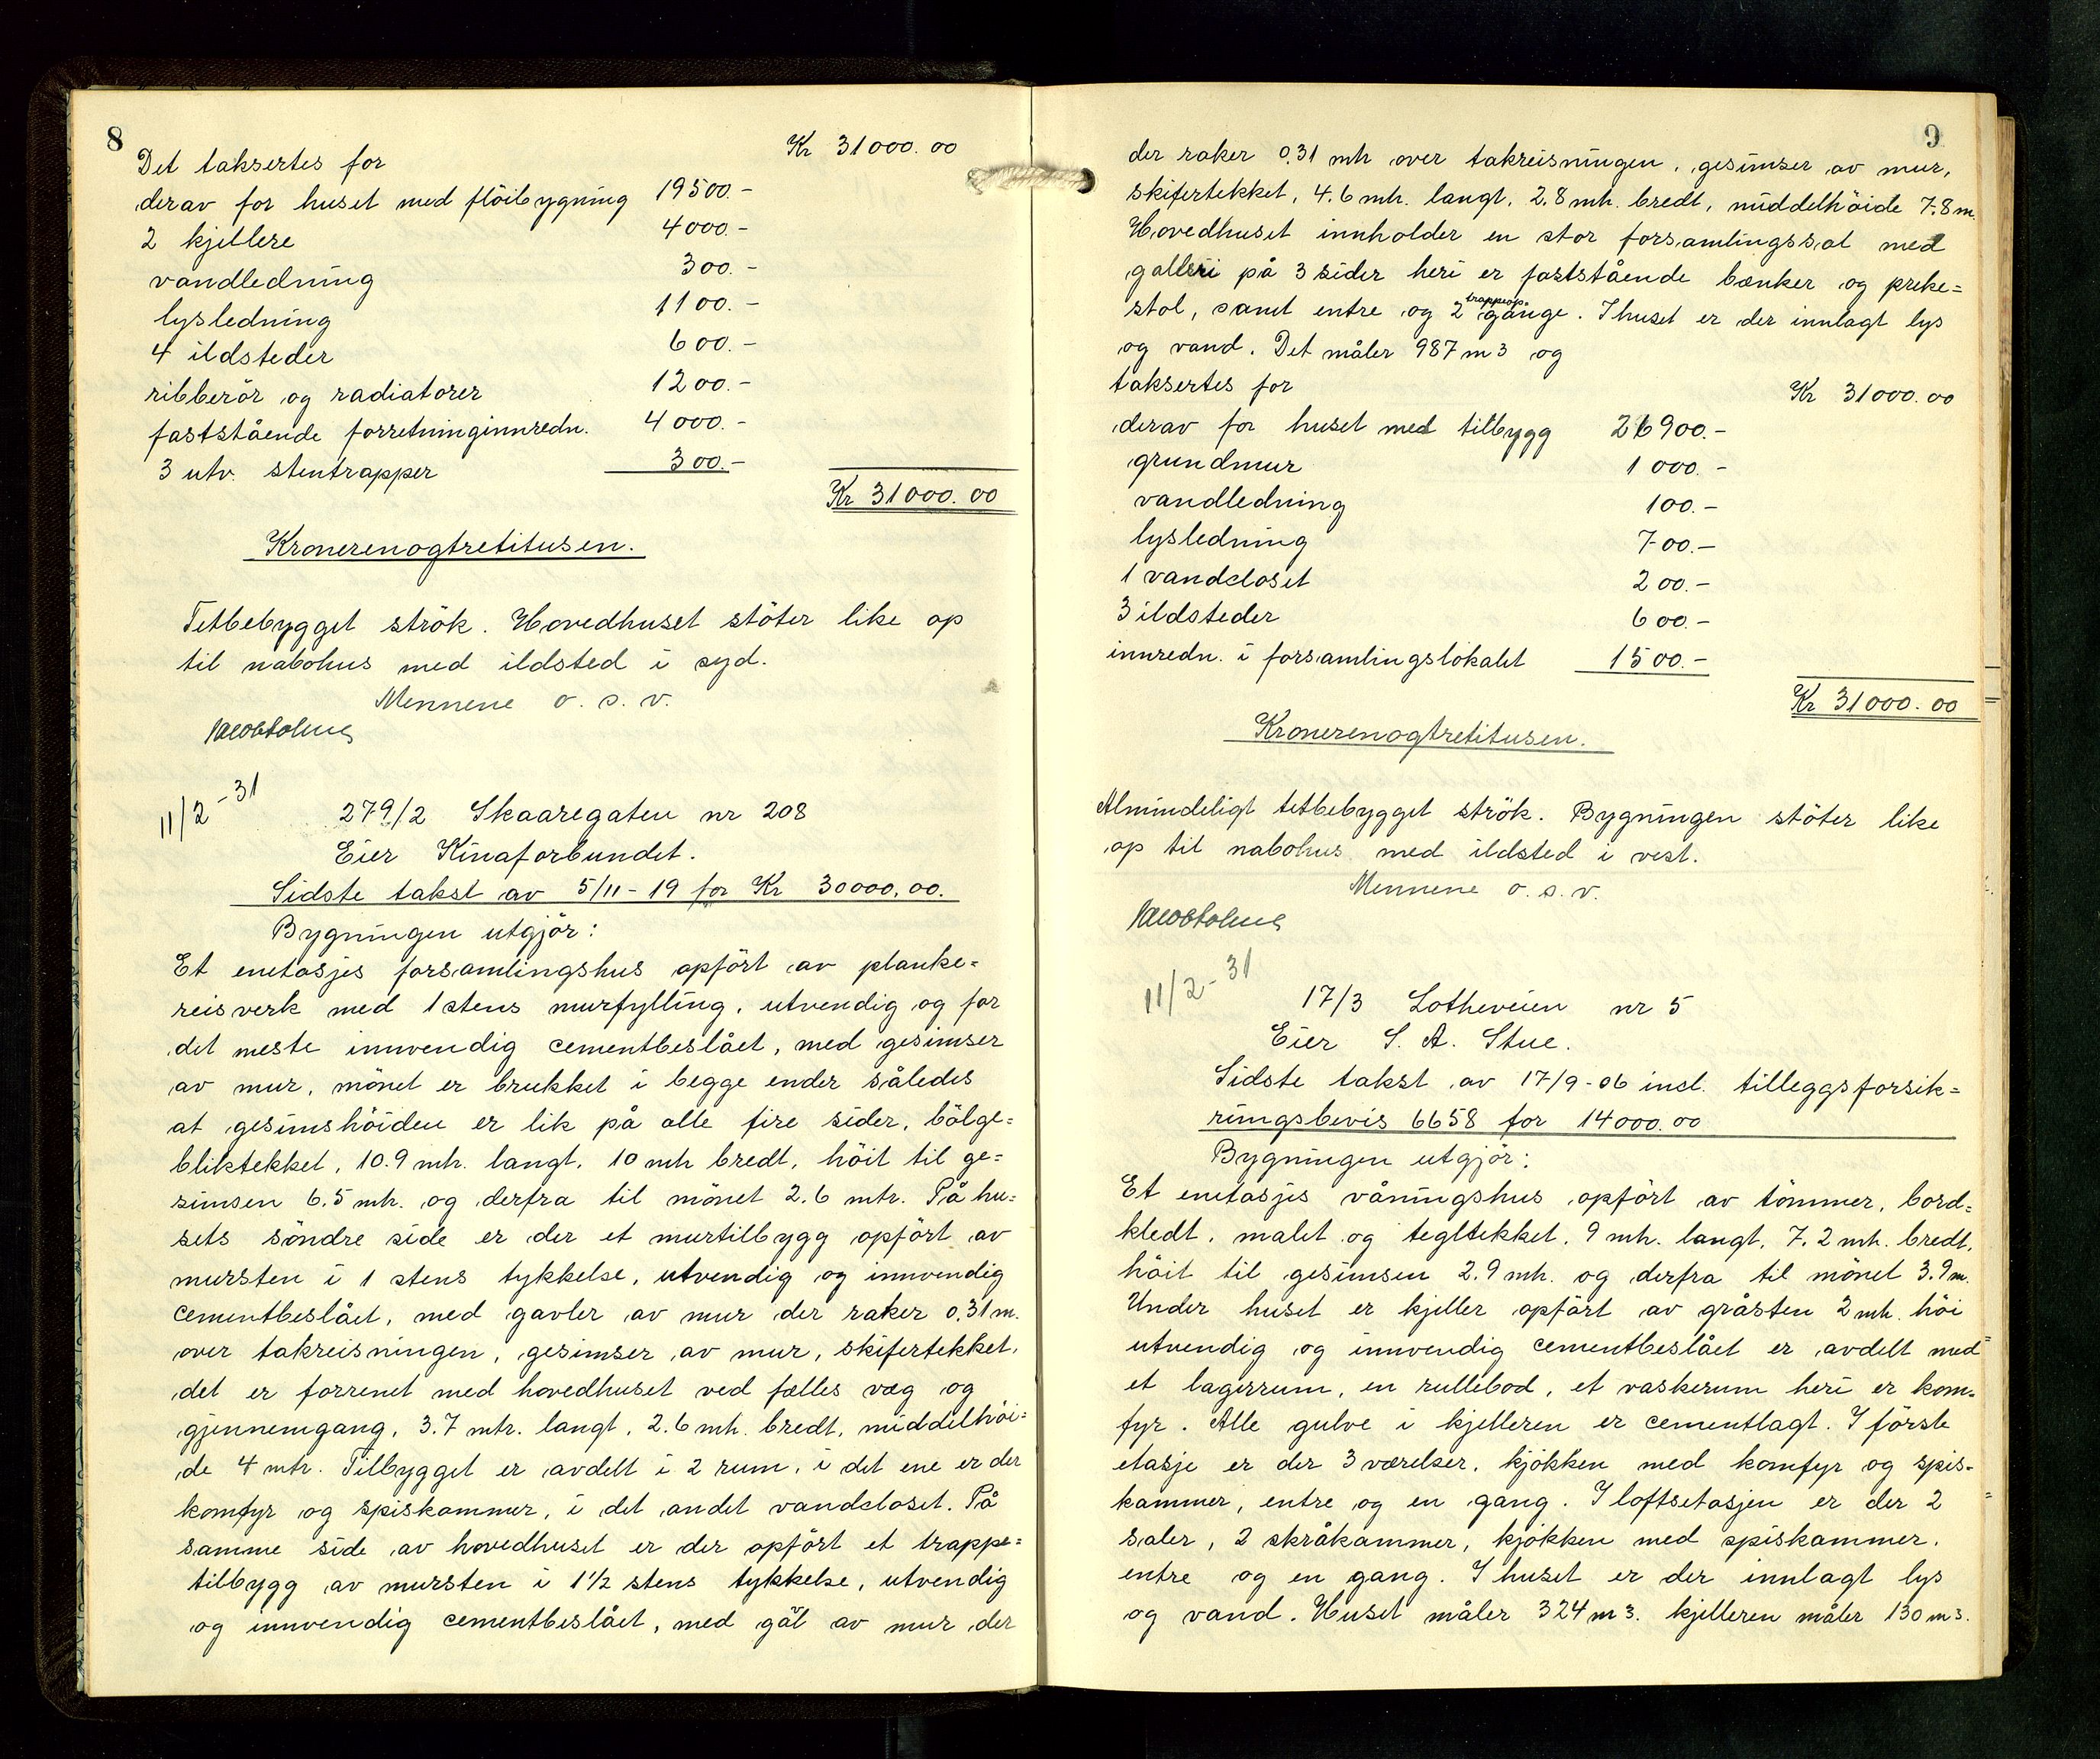 8
Det taksertes for Kr 31000.00
derav for huset med flöibygning 19500.-
2 kjellere 4000.-
vandledning 300.-
lysledning 1100.-
4 ildsteder 600.-
ribberör og radiatorer 1200.-
faststående forretninginnredn. 4000.-
3 utv. stentrapper 300.-
Kr 31000.00
Kronerenogtretitusen.
Tetbebygget strök. Hovedhuset stöter like op
til nabohus med ildsted i syd.
Mennene o. s. v.
11/2-31
279/2 Skaaregaten nr 208
Eier Kinaforbundet.
Sidste takst av 5/11-19 for Kr 30000.00.
Bygningen utgjör:
Et enetasjes forsamlingshus opfört av planke=
reisverk med 1 stens murfylling, utvendig og for
det meste innvendig cementbeslået, med gesimser
av mur, mönet er brukket i begge ender således
at gesimshöiden er lik på alle fire sider, bölge=
bliktekket, 10.9 mtr. langt, 10 mtr bredt, höit til ge=
simsen 6.5 mtr. og derfra til mönet 2.6 mtr. På hu=
sets söndre side er der et murtilbygg opfört av
mursten i 1 stens tykkelse, utvendig og innvendig
cementbeslået, med gavler av mur der raker 0.31 m.
over takreisningen, gesimser av mur, skifertekket,
det er forrenet med hovedhuset ved fælles væg og
gjennemgang, 3.7 mtr. langt, 2.6 mtr. bredt, middelhöi=
de 4 mtr. Tilbygget er avdelt i 2 rum, i det ene er der
komfyr og spiskammer, i det andet vandcloset. På
samme side av hovedhuset er der opfört et trappe=
tilbygg av mursten i 1½ stens tykkelse, utvendig
og innvendig cementbeslået, med gål av mur der
9
der raker 0.31 mtr over takreisningen, gesimser av mur,
skifertekket, 4.6 mtr. langt, 2.8 mtr. bredt, middelhöide 7.8 m.
Hovedhuset innholder en stor forsamlingssal med
galleri på 3 sider heri er faststående bænker og preke=
stol, samt entre og 2 trappeop gange. I huset er der innlagt lys
og vand. Det måler 987 m3 og
taksertes for Kr 31000.00
derav for huset med tilbygg 26900.-
grundmur 1000.-
vandledning 100.-
lysledning 700.-
1 vandcloset 200.-
3 ildsteder 600.-
innredn. i forsamlingslokalet 1500.-
Kr 31000.00
Kronerenogtretitusen.
Almindeligt tetbebygget strök. Bygningen stöter like
op til nabohus med ildsted i vest.
Mennene o. s. v.
11/2-31
17/3 Lotheveien nr 5
Eier S. A. Stue.
Sidste takst av 17/9-06 incl. tilleggsforsik=
ringsbevis 6658 for 14000.00
Bygningen utgjör:
Et enetasjes våningshus opfört av tömmer, bord=
kledt, malet og tegltekket, 9 mtr. langt, 7.2 mtr. bredt,
höit til gesimsen 2.9 mtr. og derfra til mönet 3.9 m.
Under huset er kjeller opfört av gråsten 2 mtr. höi
utvendig og innvendig cementbeslået er avdelt med
et lagerrum, en rullebod, et vaskerum heri er kom=
fyr. Alle gulve i kjelleren er cementlagt. I förste
etasje er der 3 værelser, kjökken med komfyr og spis=
kammer, entre og en gang. I loftsetasjen er der 2
saler, 2 skråkammer, kjökken med spiskammer,
entre og en gang. I huset er der innlagt lys
og vand. Huset måler 324 m3. kjelleren måler 130 m3.